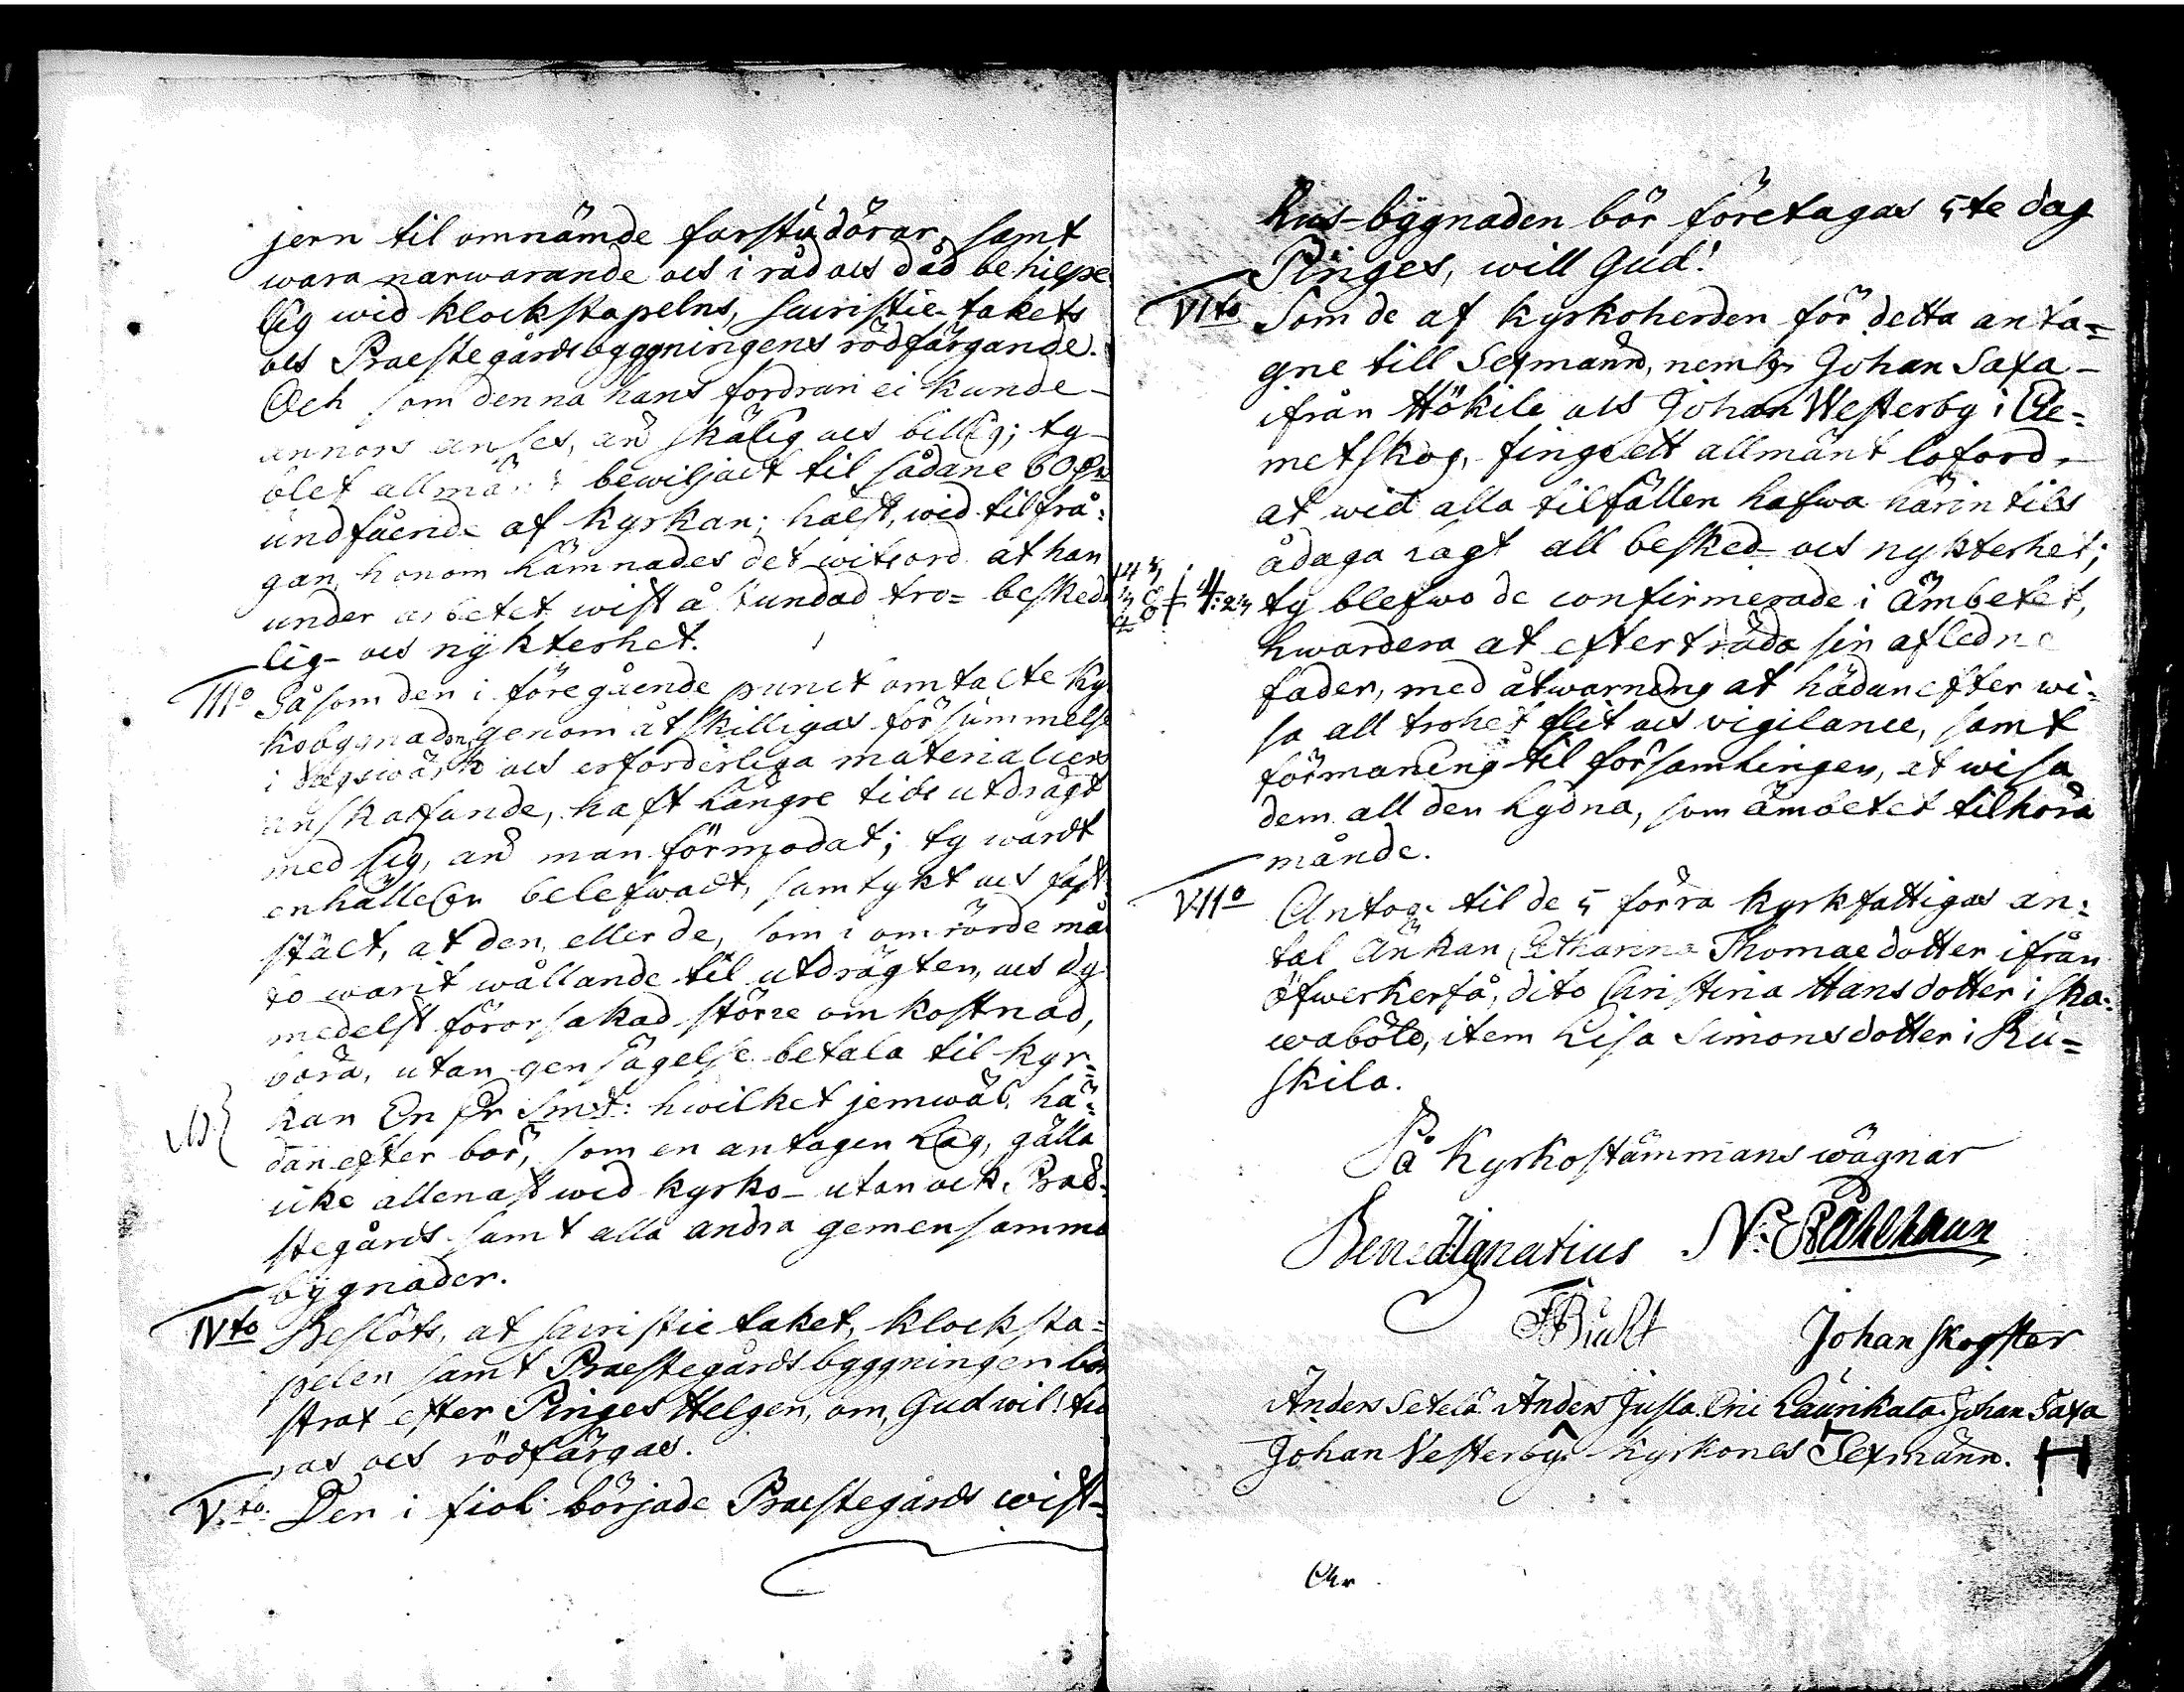 jern til omnämde farstudörar, samt
wara närwarande och i råd och dåd behielpe
lig wid klockstapelns, sacristie-takets
och Praestegårdsbyggningens rödfärgande.
Och som denna hans fordran ei kunde
annors anses, än skälig och billig; ty
blef allmänt bewiljadt til sådane 60
undfående af kyrkan; hälst, wid tilfrå-
gan, honom lämnades det witsord at han
under arbetet wist åstundad tro- besked-
lig- och nykterhet.
III:o Såsom den i föregående punct omtalte Ky
kobygnaden genom åtskilligas försummelse
i dagswärk och erforderliga materialiers
anskaffande, haft längre tids utdrägt
med sig, än man förmodat; ty wardt
enhälleligen belefwadt, samtykt och fast
stält, at den, eller de, som i omrörde må
to warit wållande til utdrägten, och dy
medelst förorsakad större omkostnad,
böra, utan gensägelse betala til kyr-
kan En Smt: hwilket jemwäl hä-
danefter bör, som en antagen Lag, gälla
icke allenast wid kyrko- utan ock Prae-
stegårds- samt alla andra gemensamma
bygnader.
IVto Beslöts, at sacristie taket, klocksta-
pelen samt Praestegårdsbyggningen bör
strax efter Pinges Helgen, om Gud wil!
ras och rödfärgas.
V.to Den i fiol började Praestegårds wist-
hus-bygnaden bör företagas 5te dag
Pinges, will Gud!
VIto Som de af Kyrkoherden för detta anta-
gne till Sexmänn, neml. Johan Saxa
ifrån Hökilä och Johan Westerby i Cle-
metskog, finge ett allmänt loford,
at wid alla tilfällen hafwa härintils
ådagalagt all besked- och nykterhet;
ty blefwo de confirmerade i Ämbetet,
hwardera at efterträda sin afledne
fader, med åtwarning at hädanefter wi-
sa all trohet flit och vigilance, samt
förmaning til församlingen, at wisa
dem all den lydna, som ämbetet tilhöra
månde.
VII:o Antogs til de 5 förra kyrkfattigas an-
tal Änkan Catharina Thomaedotter ifrån
öfwerkerfå, dito Christina Hansdotter i Ska-
wabölä, item Lisa Simonsdotter i Ku-
skila.
På Kyrkostämmans wägnar
Bened Ignatius N: Påhlman
Johan Skogster
Anders Setelä Anders Jusla Eric Laurikala Johan Saxa
Johan Vesterby. Kyrkones Sexmänn.